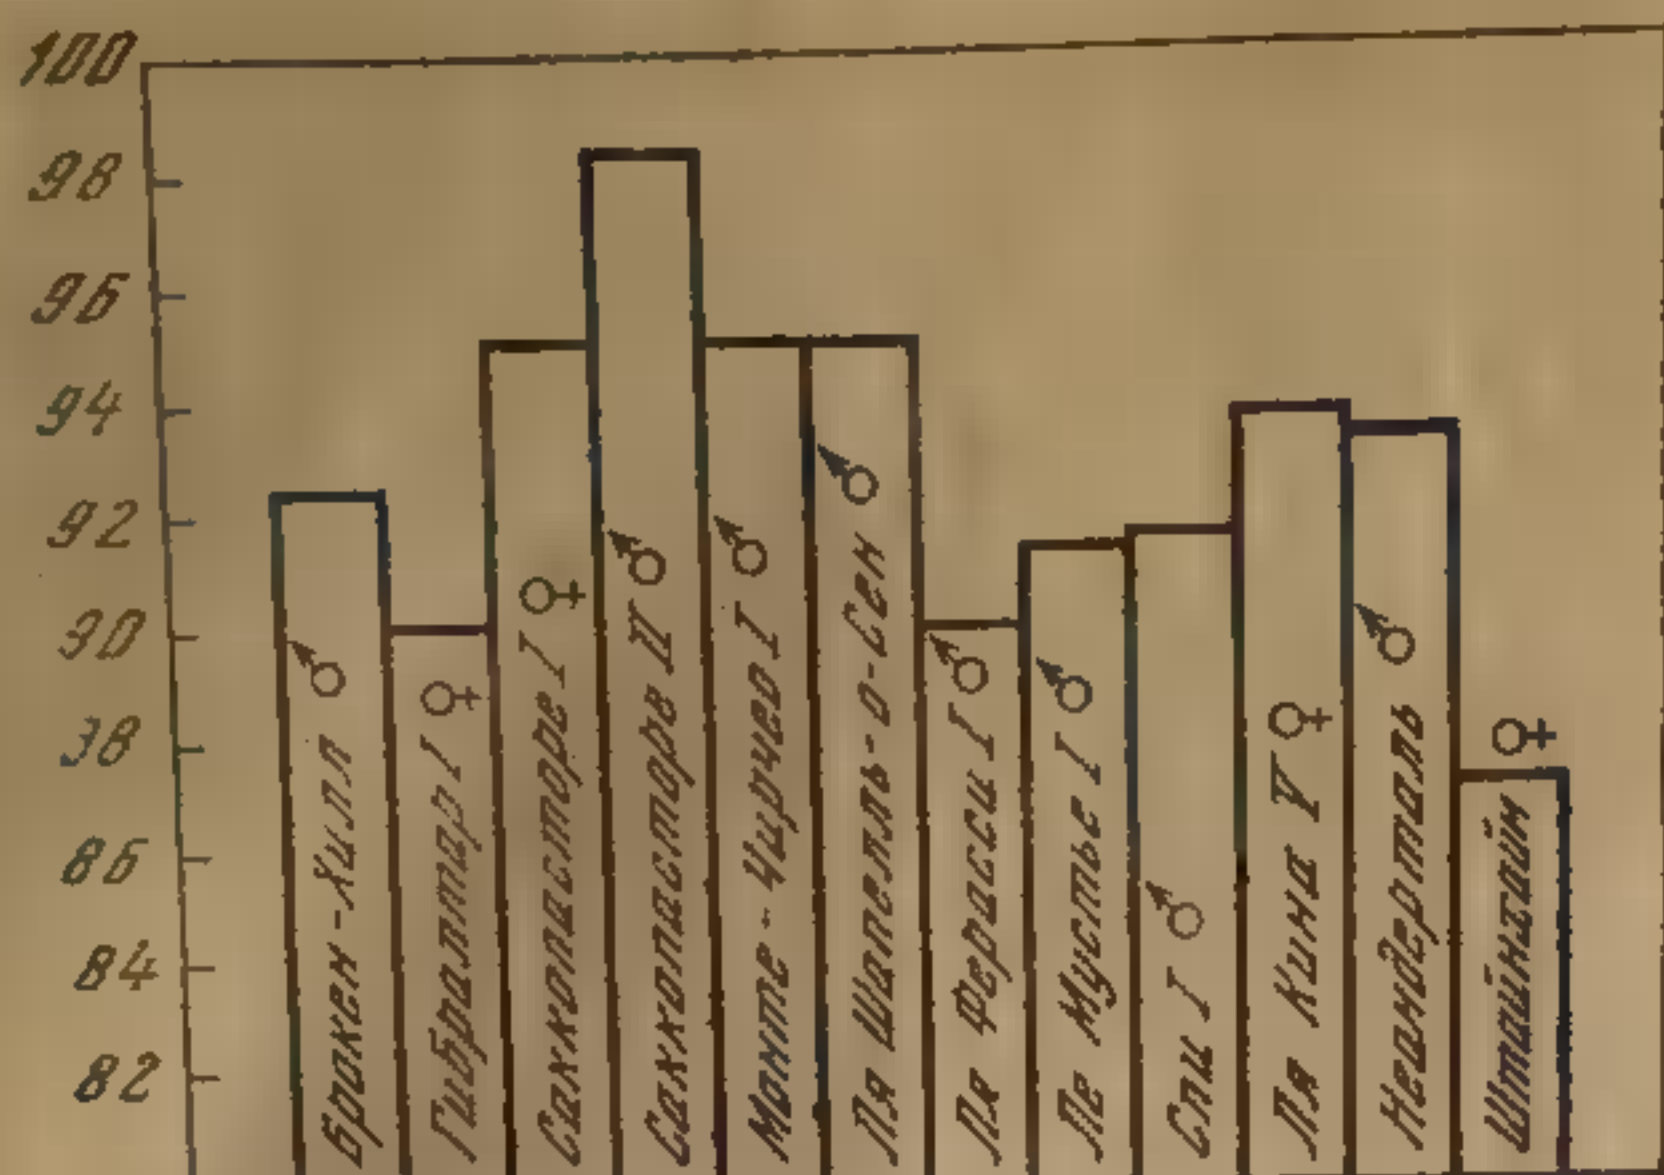 100
98
96
94
92
90
88
86
84
82
Брокен-Хилл ♂
Гибралтар I ♀
Саккопасторе I ♀
Саккопасторе II ♂
Монте-Чирчео I ♂
Ля Шапелль-о-Сен ♂
Ля Ферасси I ♂
Ле Мустье I ♂
Спи I ♂
Ля Кина V ♀
Неандерталь ♂
Штайнхайм ♀